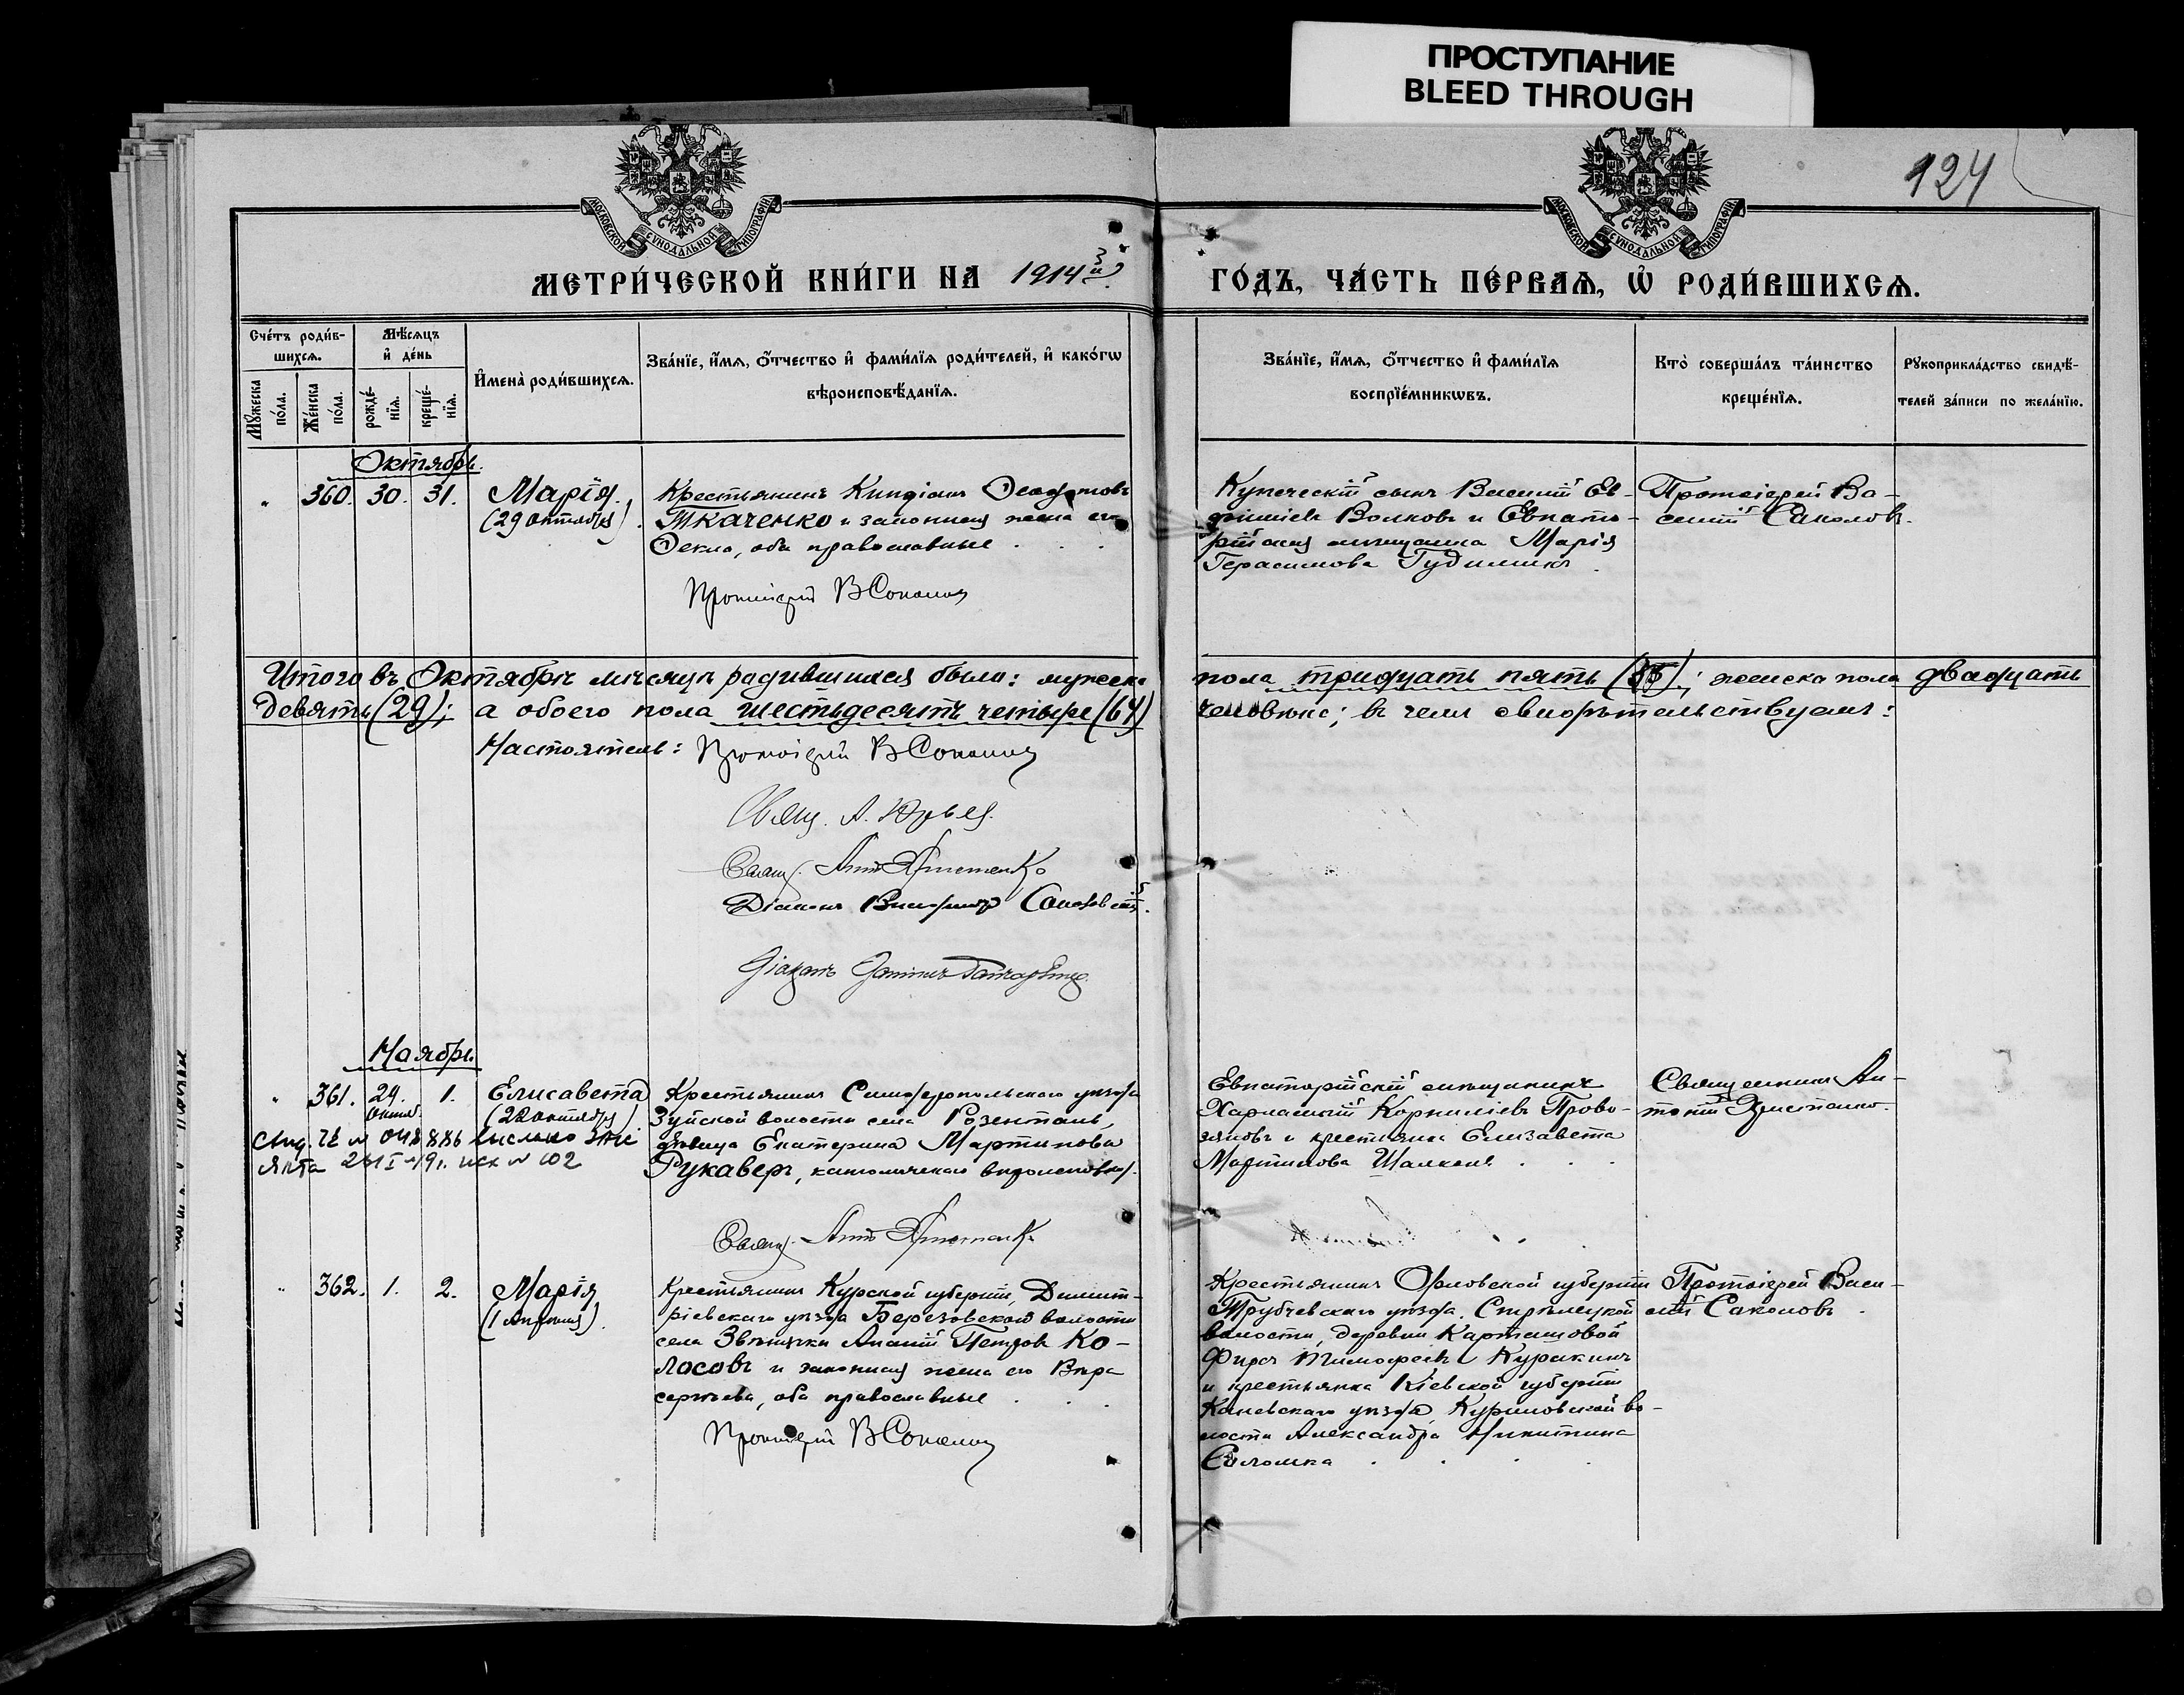 ПРОСТУПАНИЕ
BLEED THROUGH
124
МОСКОВСКОЙ СѴНОДАЛЬНОЙ ТИПОГРАФІИ
МОСКОВСКОЙ СѴНОДАЛЬНОЙ ТИПОГРАФІИ
МЕТРИ́ЧЕСКОЙ КНИ́ГИ НА 1914й
ГО́ДЪ, ЧА́СТЬ ПЕ́РВАѦ, Ѡ҆ РОДИ́ВШИХСѦ.
Сче́тъ роди́в-
шихсѧ.
Мѣ́сѧцъ
и҆ де́нь
Мꙋ́жеска по́ла.
Же́нска по́ла.
рожде́-нїѧ.
креще́-нїѧ.
И҆мена̀ роди́вшихсѧ.
Зва́нїе, и҆́мѧ, ѻ҆́тчество и҆ фами́лїѧ роди́телей, и҆ како́гѡ
вѣроисповѣ́данїѧ.
Зва́нїе, и҆́мѧ, ѻ҆́тчество и҆ фами́лїѧ
воспрїе́мникѡвъ.
Кто̀ соверша́лъ та́инство
креще́нїѧ.
Рꙋкоприкла́дство свидѣ́-
телей за́писи по жела́нїю.
Октябрь.
" 360. 30. 31. Марія.
(29 октября).
Крестьянинъ Кипріанъ Ѳеодотовъ
Ткаченко и законная жена его
Ѳекла, оба православные . . .
Протоіерей В Соколовъ
Купеческій сынъ Василій Ев-
фиміевъ Волковъ и Евпато-
рійская мѣщанка Марія
Герасимова
Протоіерей Ва-
силій Соколовъ.
Итого въ Октябрѣ мѣсяцѣ родившихся было: мужеска пола тридцать пять (35); женска пола двадцать
девять (29); а обоего пола шестьдесятъ четыре (64) человѣка; въ чемъ свидѣтельствуемъ:
Настоятель: Протоіерей В Соколовъ
Свящ. А.
Свящ. Ант
Діаконъ
Діаконъ
Ноябрь.
" 361. 29. 1. Елисавета
октяб. (22 октября)
Ялта
Крестьянка Симферопольскаго уѣзда
Зуйской волости села Розенталь,
дѣвица Екатерина Мартинова
Рукаверъ, католическаго вѣроисповѣд.
Свящ. Ант
Евпаторійскій мѣщанинъ
Харлампій Корниліевъ Прово-
зяновъ и крестьянка Елизавета
Мартинова . . .
Священникъ Ан-
тоній
" 362. 1. 2. Марія
(1 Апрѣля).
Крестьянинъ Курской губерніи, Димит-
ріевскаго уѣзда Березовской волости
села Звѣнячки Ананій Петровъ Ко-
лосовъ и законная жена его Вѣра
Сергѣева, оба православные . . .
Протоіерей В Соколовъ
Крестьянинъ Орловской губерніи
Трубчевскаго уѣзда, Стрѣлецкой
волости, деревни Карташовой
Фирсъ Тимофеевъ Куракинъ
и крестьянка Кіевской губерніи
Каневскаго уѣзда, Куриловской во-
лости Александра Никитина
Соломка . . . .
Протоіерей Васи-
лій Соколовъ .